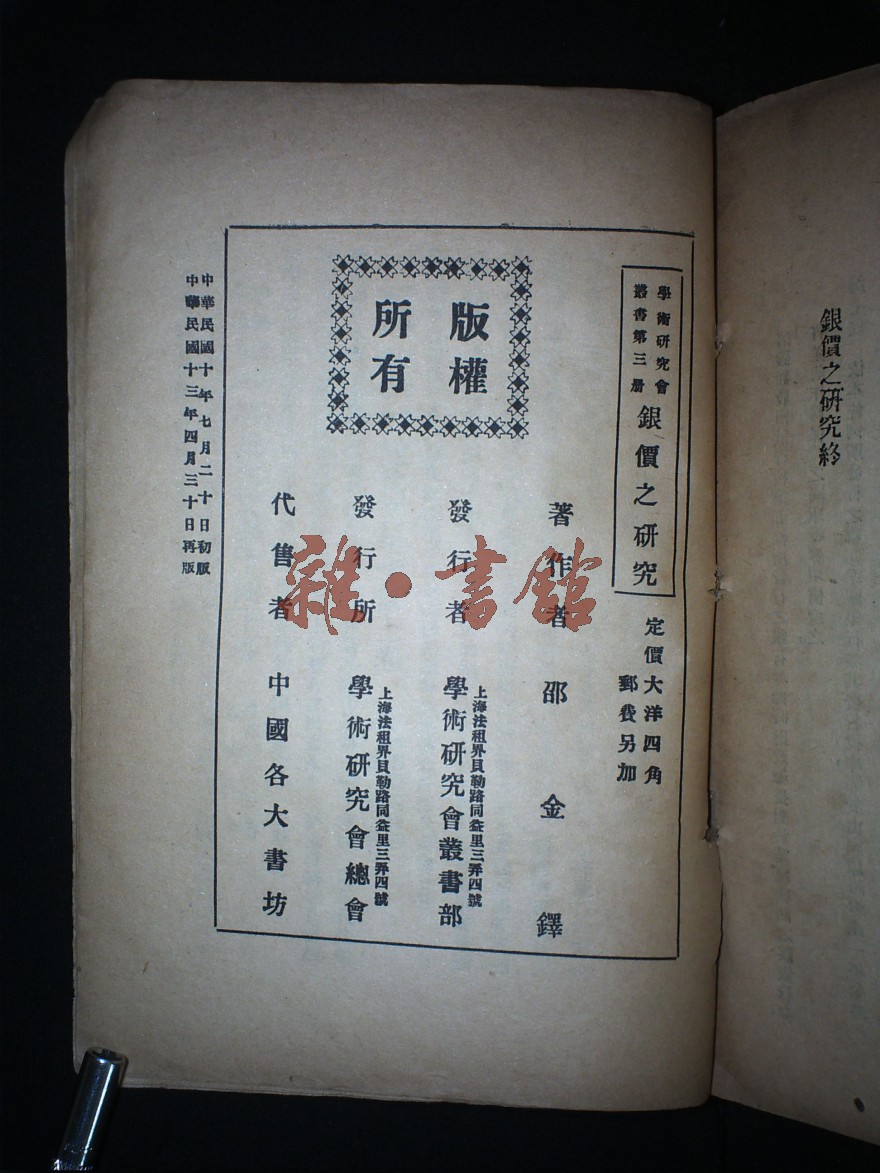 銀價之研究終
學術研究會
叢書第三册
銀價之研究
定價大洋四角
郵費另加
版權
所有
著作者 邵金鐸
發行者 上海法租界貝勒路同益里三弄四號
學術研究會叢書部
發行所 上海法租界貝勒路同益里三弄四號
學術研究會總會
代售者 中國各大書坊
中華民國十年七月二十日初版
中華民國十三年四月三十日再版
雜·書館